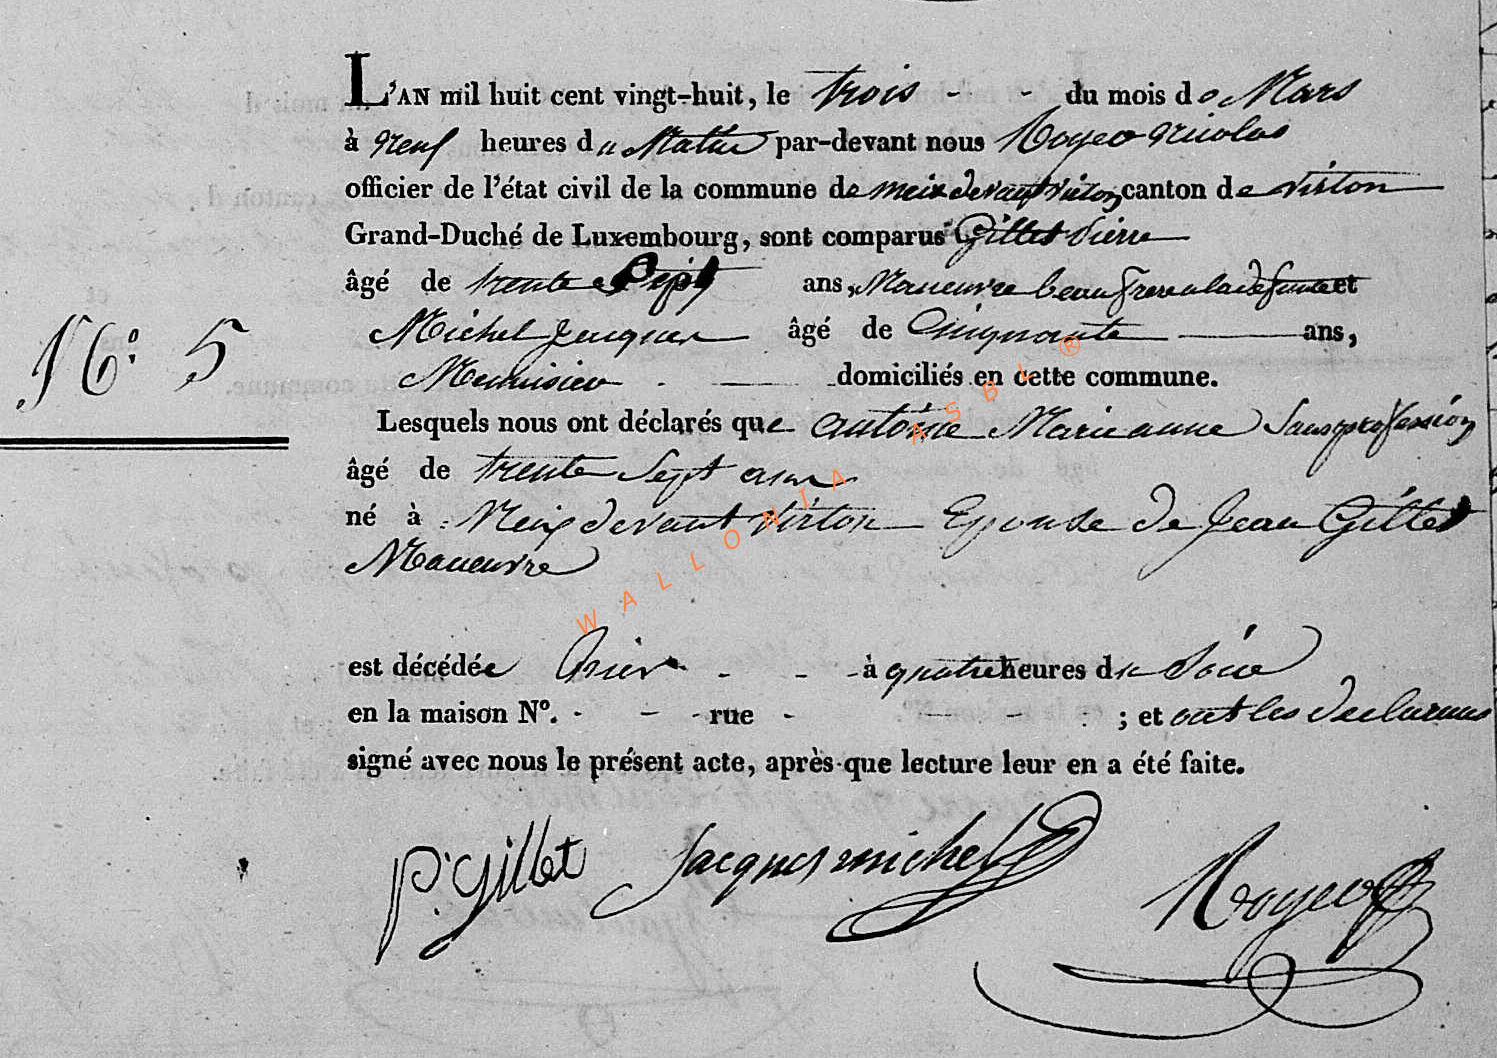 L'AN mil huit cent vingt-huit, le trois - - du mois de Mars
à neuf heures du Matin par-devant nous Noyer Nicolas
officier de l'état civil de la commune de meix devant virton canton de virton
Grand-Duché de Luxembourg, sont comparus Gillet Pierre
âgé de trente Sept ans, Maneuvre beaufrere a la defunte et
Michel Jacques âgé de Cinquante ans,
Menuisier domiciliés en cette commune.
N.º 5
Lesquels nous ont déclarés que antoine Marieanne Sans profession
âgé de trente Sept ans
né à Meix devant virton Epouse de Jean Gillet
Maneuvre
est décédée hier - - - à quatre heures du Soir
en la maison N°. - - - rue - - - ; et ont les declarans
signé avec nous le présent acte, après que lecture leur en a été faite.
P. Gillet Jacques michel Noyer
WALLONIA ASBL ®